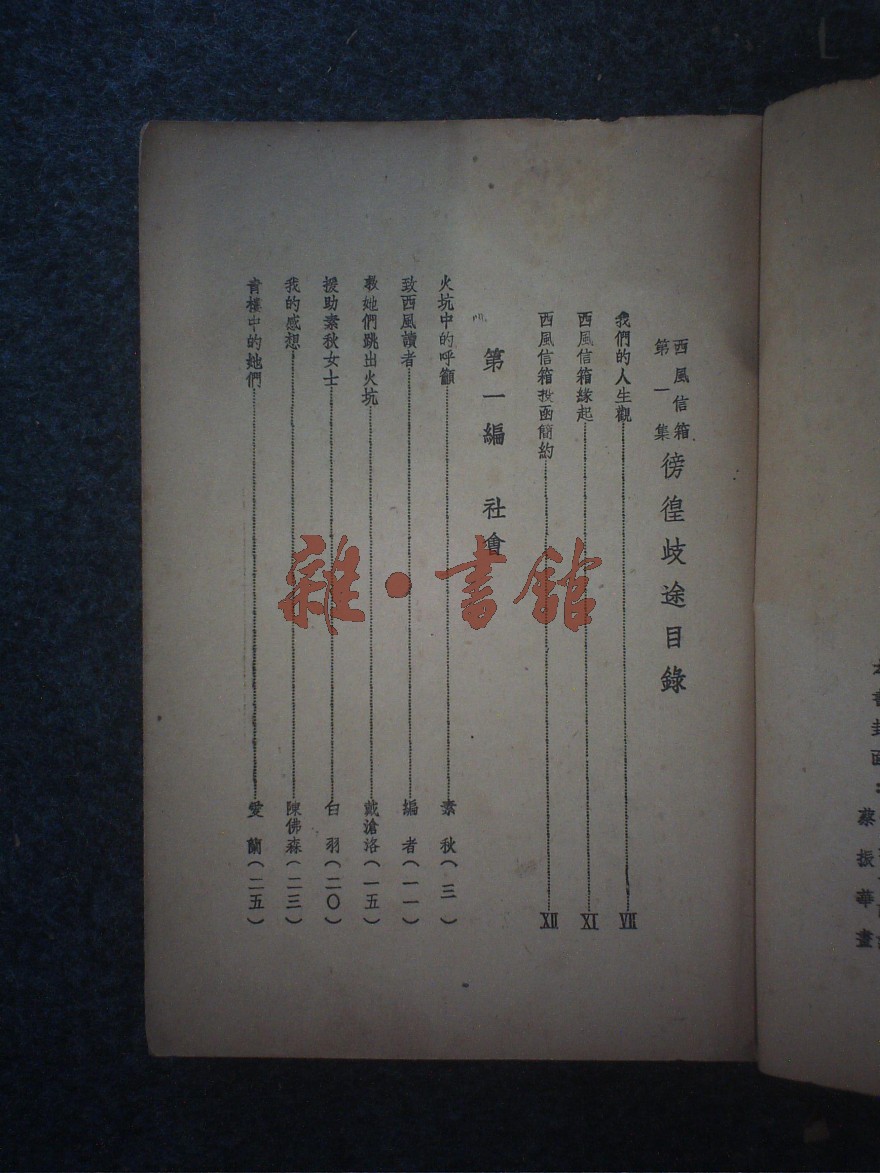 西風信箱
第一集
徬徨歧途目錄
我們的人生觀 VII
西風信箱緣起 XI
西風信箱投函簡約 XII
第一編 社會
火坑中的呼籲 素秋(三)
致西風讀者 編者(一一)
救她們跳出火坑 戴滄洛(一五)
援助素秋女士 白羽(二〇)
我的感想 陳佛森(二三)
青樓中的她們 愛蘭(二五)
雜·書館
蔡振華畫